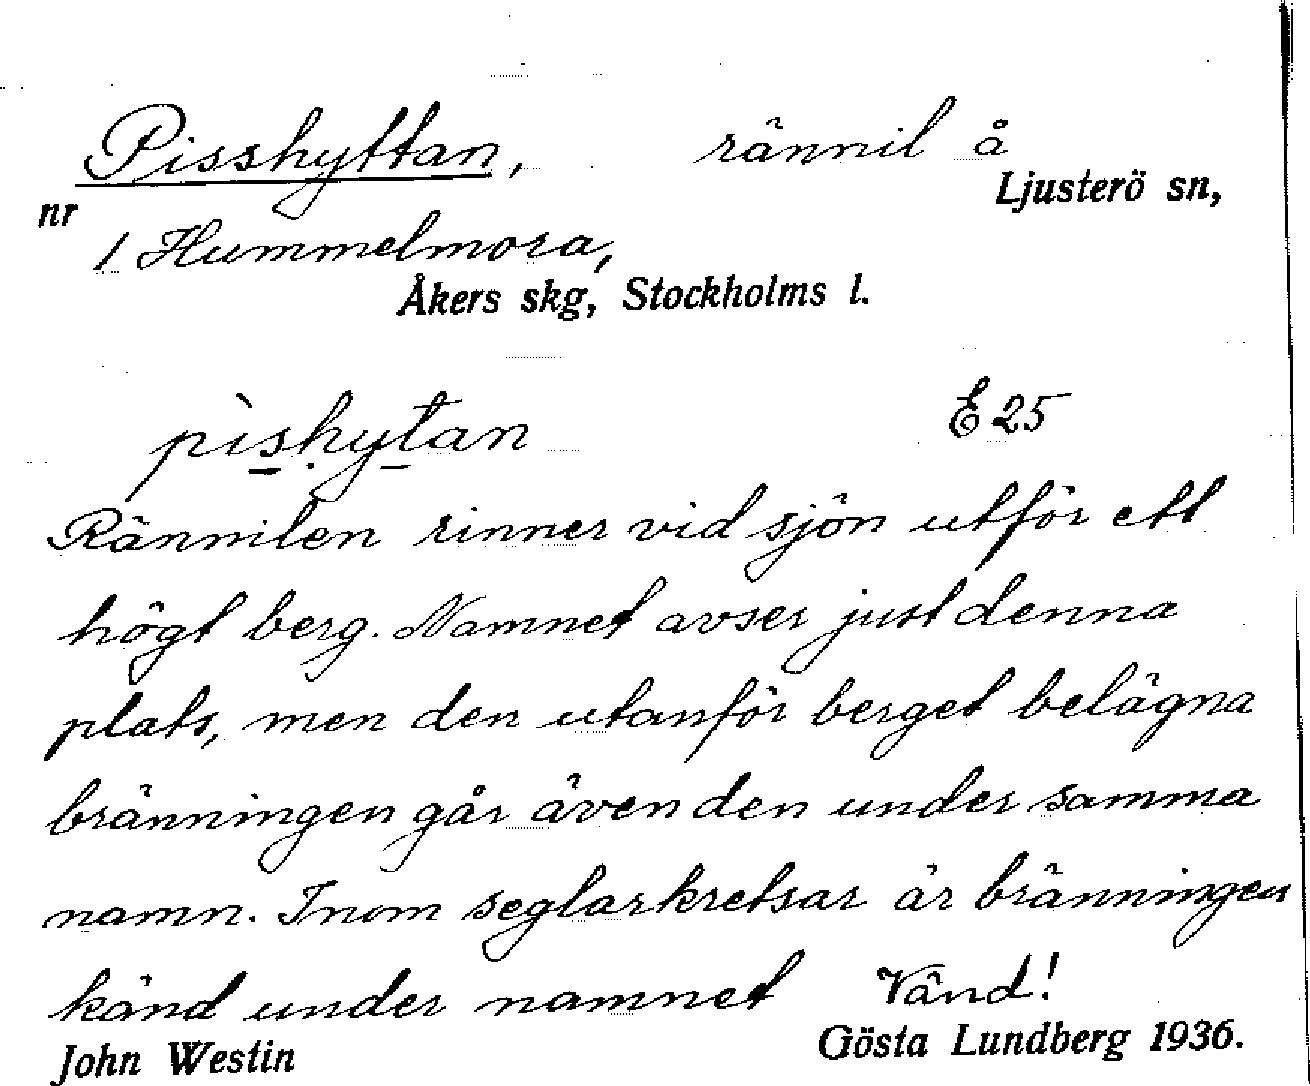 Pisshyttan, rännil å
Ljusterö sn,
nr
1 Hummelmora,
Åkers skg, Stockholms l.
pìshytan E 25
Rännilen rinner vid sjön utför ett
högt berg. Namnet avser just denna
plats, men den utanför berget belägna
bränningen går även den under samma
namn. Inom seglarkretsar är bränningen
känd under namnet Vänd!
John Westin Gösta Lundberg 1936.